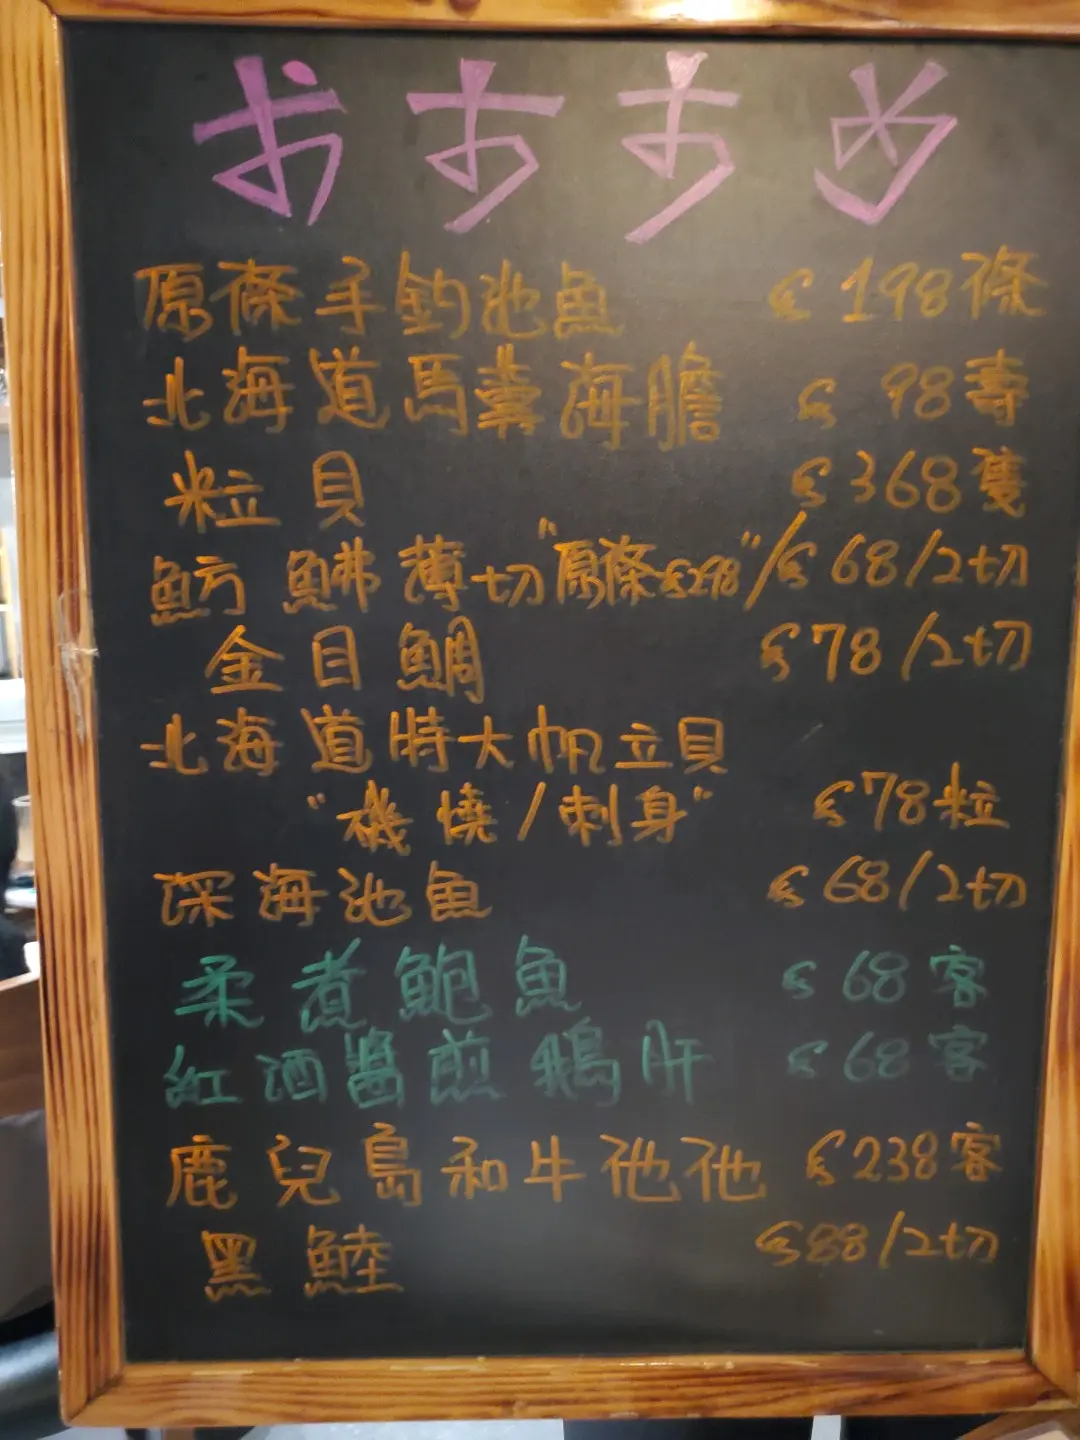 おすすめ
原條手釣池魚 $198條
北海道馬糞海膽 $98壽
粒貝 $368隻
魴鮄薄切"原條$298"/$68/2切
金目鯛 $78/2切
北海道特大帆立貝
"磯燒/刺身" $78粒
深海池魚 $68/2切
柔煮鮑魚 $68客
紅酒醬煎鵝肝 $68客
鹿兒島和牛他他 $238客
黑鯥 $88/2切